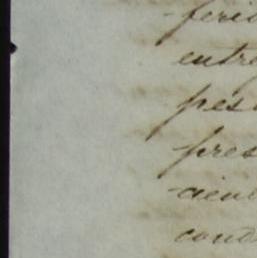 feri
entre
pes
pres
cien
cond